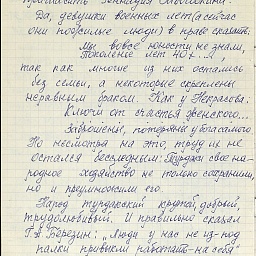 Геннадия Заволокина.
Да, девушки военных лет (а сейчас
они пожилые люди) в праве сказать:
Мы вовсе юности не знали,
Поколение лет 40х...",
так как многие из них остались
без семьи, а некоторые скреплены
неравным браком. Как у Некрасова:
Ключи от счастья женского...
Заброшены, потеряны у бога самого
Но несмотря на это, труд их не
остался бесследным. Турдаки свое на-
родное хозяйство не только сохранили,
но и преумножили его.
Народ турдакский крутой, добрый,
трудолюбивый. И правильно сказал
Г.Я Березин: "Люди у нас не из-под
палки привыкли работать - на себя